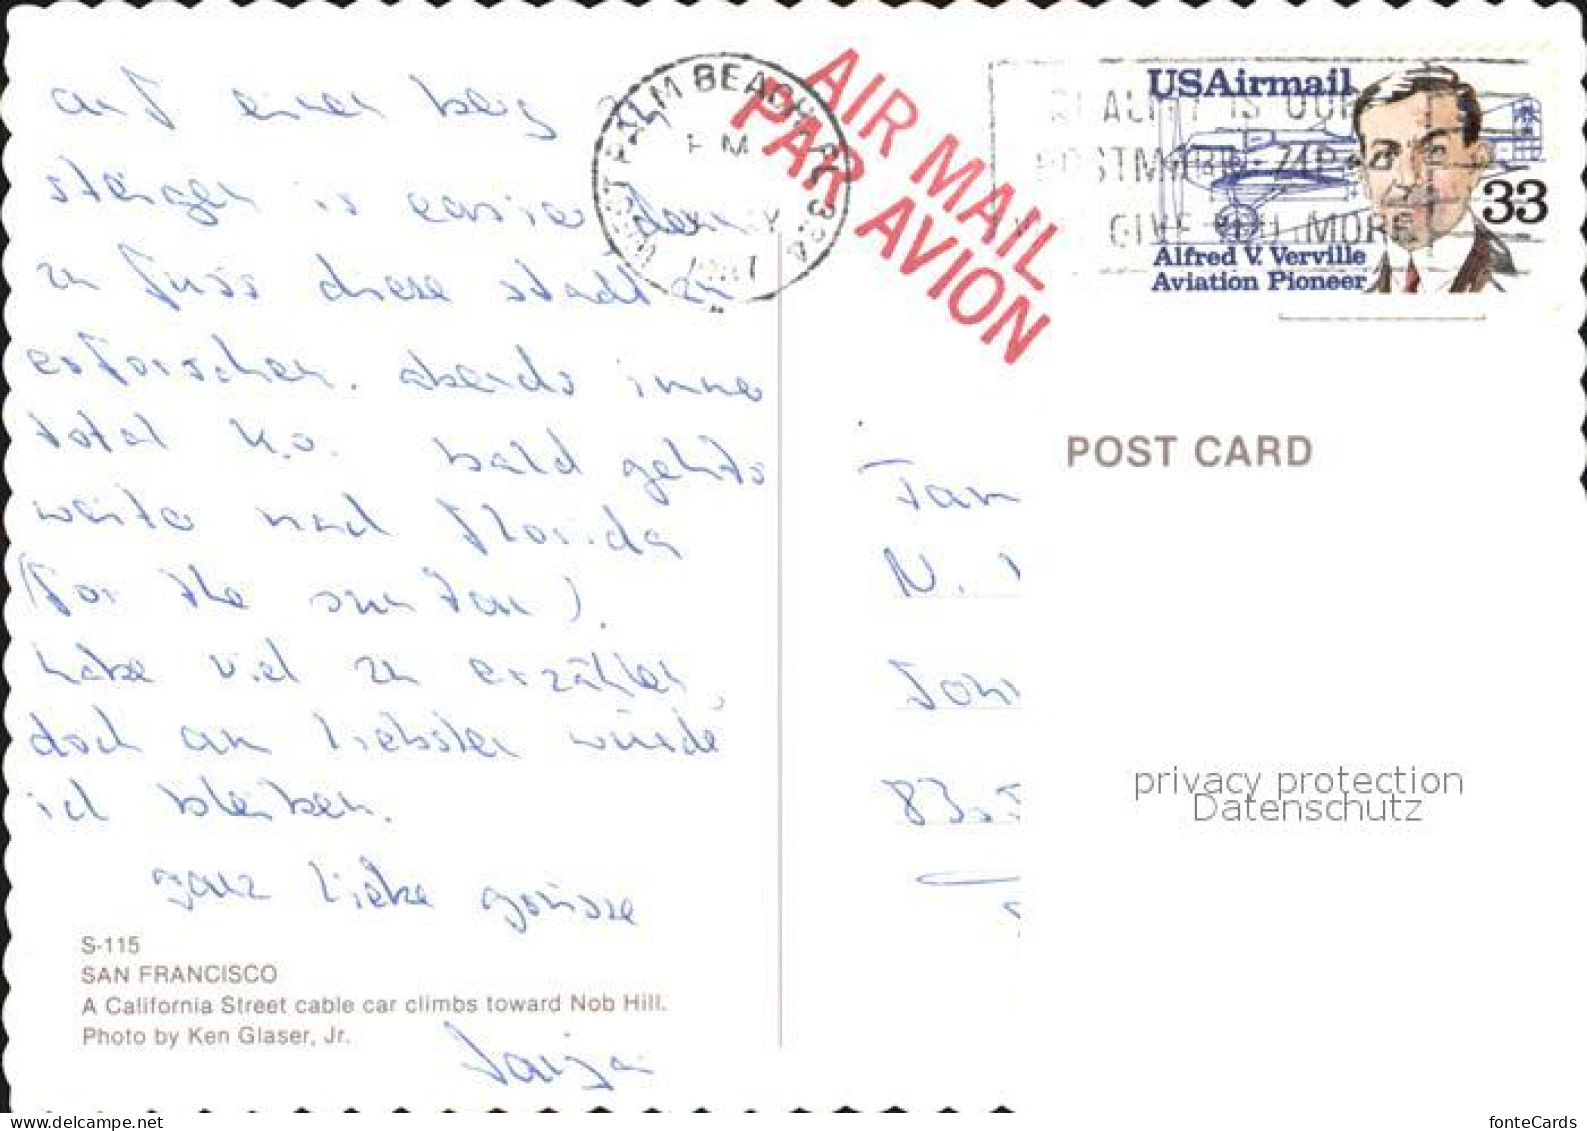 auf einen berg zu
steigen is easier denn
zu fuss diese stadt zu
erforschen. abends immer
total k.o. bald gehts
weiter nach Florida
(for the sun tan).
habe viel zu erzählen,
doch am liebsten würde
ich bleiben.
ganz liebe grüsse
S-115
SAN FRANCISCO
A California Street cable car climbs toward Nob Hill.
Photo by Ken Glaser, Jr.
WEST PALM BEACH
PM
AIR MAIL
PAR AVION
USAirmail
33
Alfred V. Verville
Aviation Pioneer
QUALITY IS OUR
POSTMARK
GIVE YOU MORE
POST CARD
Fam
N.
privacy protection
Datenschutz
www.delcampe.net
fonteCards